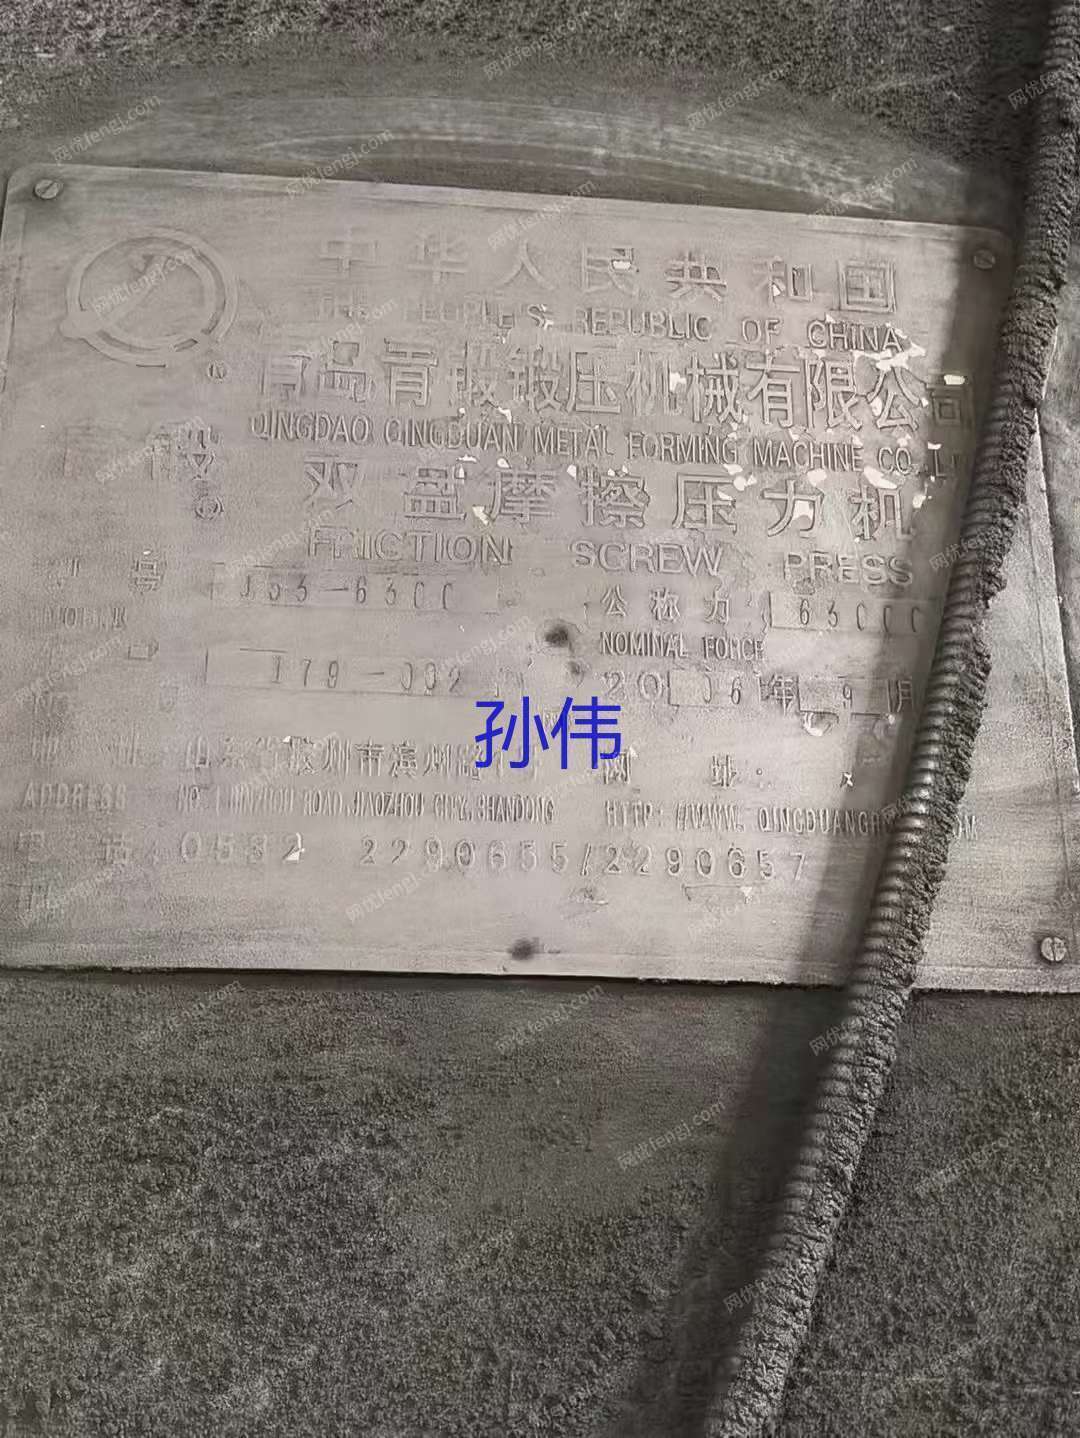 中华人民共和国
THE PEOPLE'S REPUBLIC OF CHINA
青岛青锻锻压机械有限公司
QINGDAO QINGDUAN METAL FORMING MACHINE CO., L
青锻 ®
双盘摩擦压力机
FRICTION SCREW PRESS
型号 J53-6300 公称力 63000
NOMINAL FORCE
179-002 2006年9月
孙伟
地址:山东省胶州市滨州路1号 网址:
ADDRESS NO.1 BINZHOU ROAD,JIAOZHOU CITY,SHANDONG HTTP://WWW.QINGDUAN
电话:0532 2290655/2290657
网优fengj.com